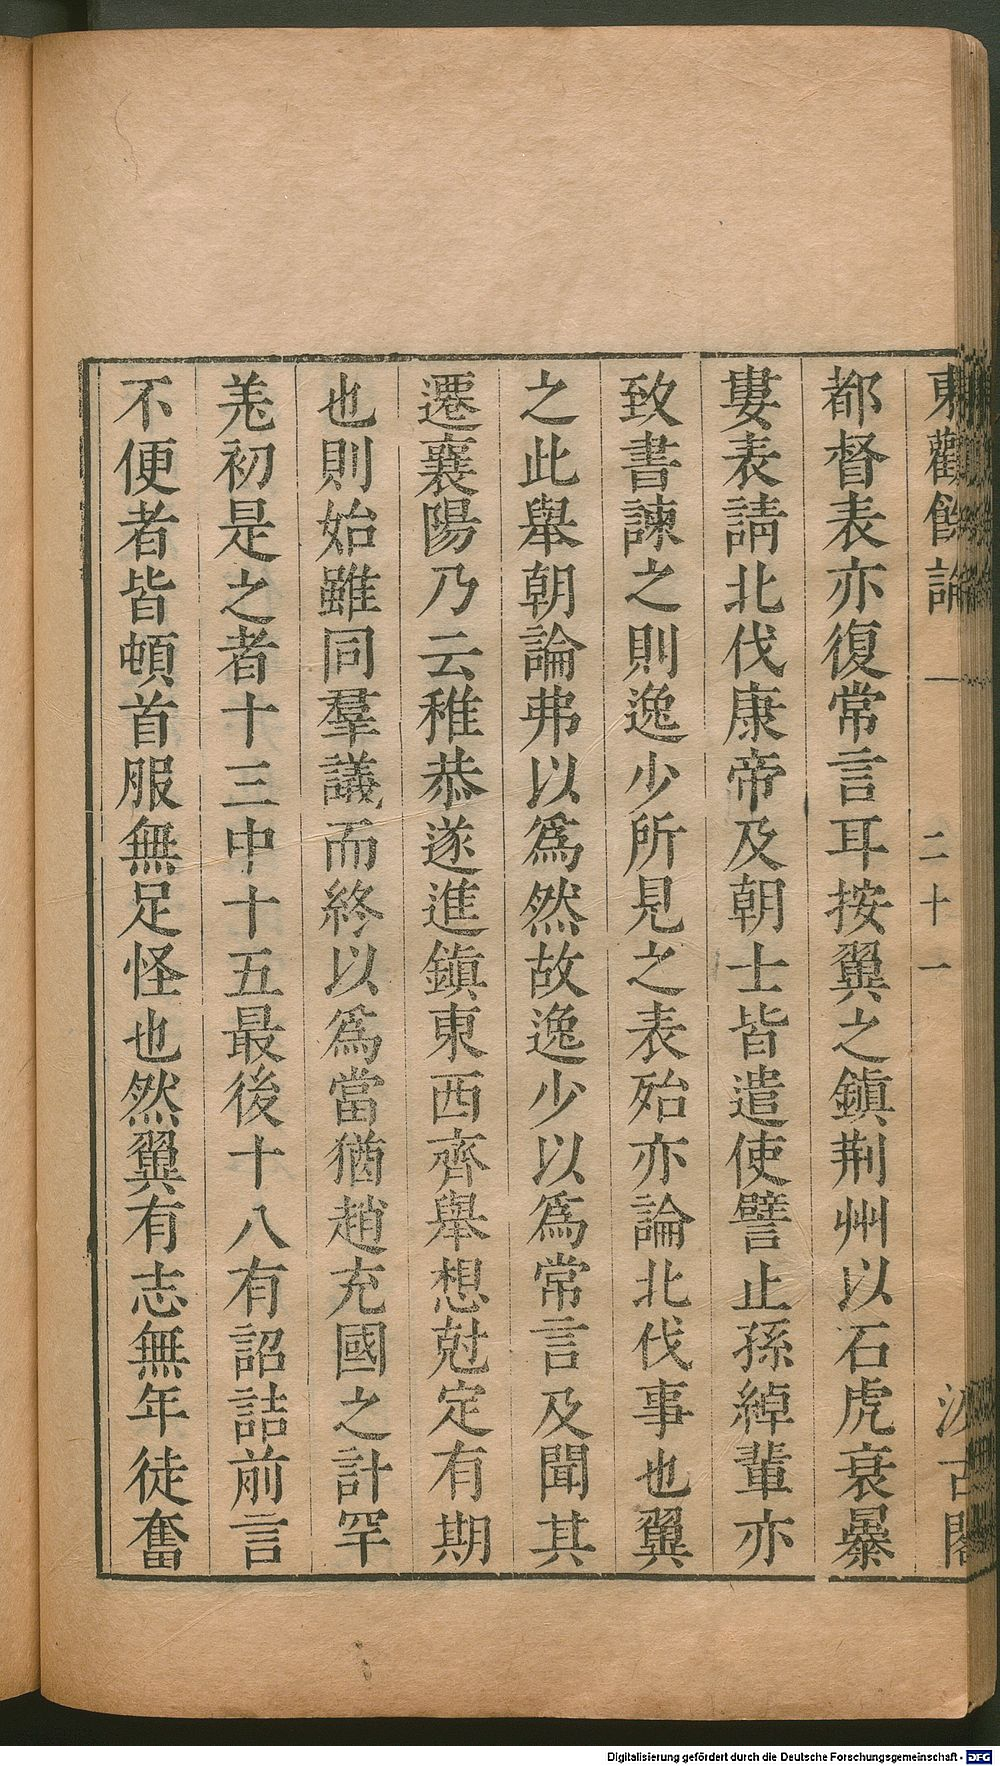 東觀餘論 一 二十一 汲古閣
都督表亦復常言耳按翼之鎮荆州以石虎衰暴
婁表請北伐康帝及朝士皆遣使譬止孫綽輩亦
致書諫之則逸少所見之表殆亦論北伐事也翼
之此舉朝論弗以爲然故逸少以爲常言及聞其
遷襄陽乃云稚恭遂進鎮東西齊舉想尅定有期
也則始雖同羣議而終以爲當猶趙充國之計罕
羌初是之者十三中十五最後十八有詔詰前言
不便者皆頓首服無足怪也然翼有志無年徒奮
Digitalisierung gefördert durch die Deutsche Forschungsgemeinschaft - DFG